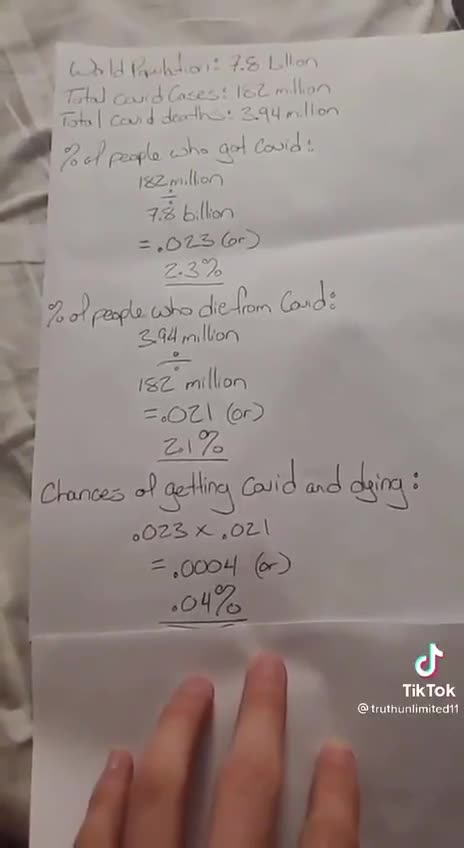 World Population: 7.8 billion
Total Covid Cases: 182 million
Total Covid deaths: 3.94 million
% of people who got Covid:
182 million
÷
7.8 billion
= .023 (or)
2.3%
% of people who die from Covid:
3.94 million
÷
182 million
= .021 (or)
2.1%
Chances of getting Covid and dying:
.023 x .021
= .0004 (or)
.04%
TikTok
@truthunlimited11